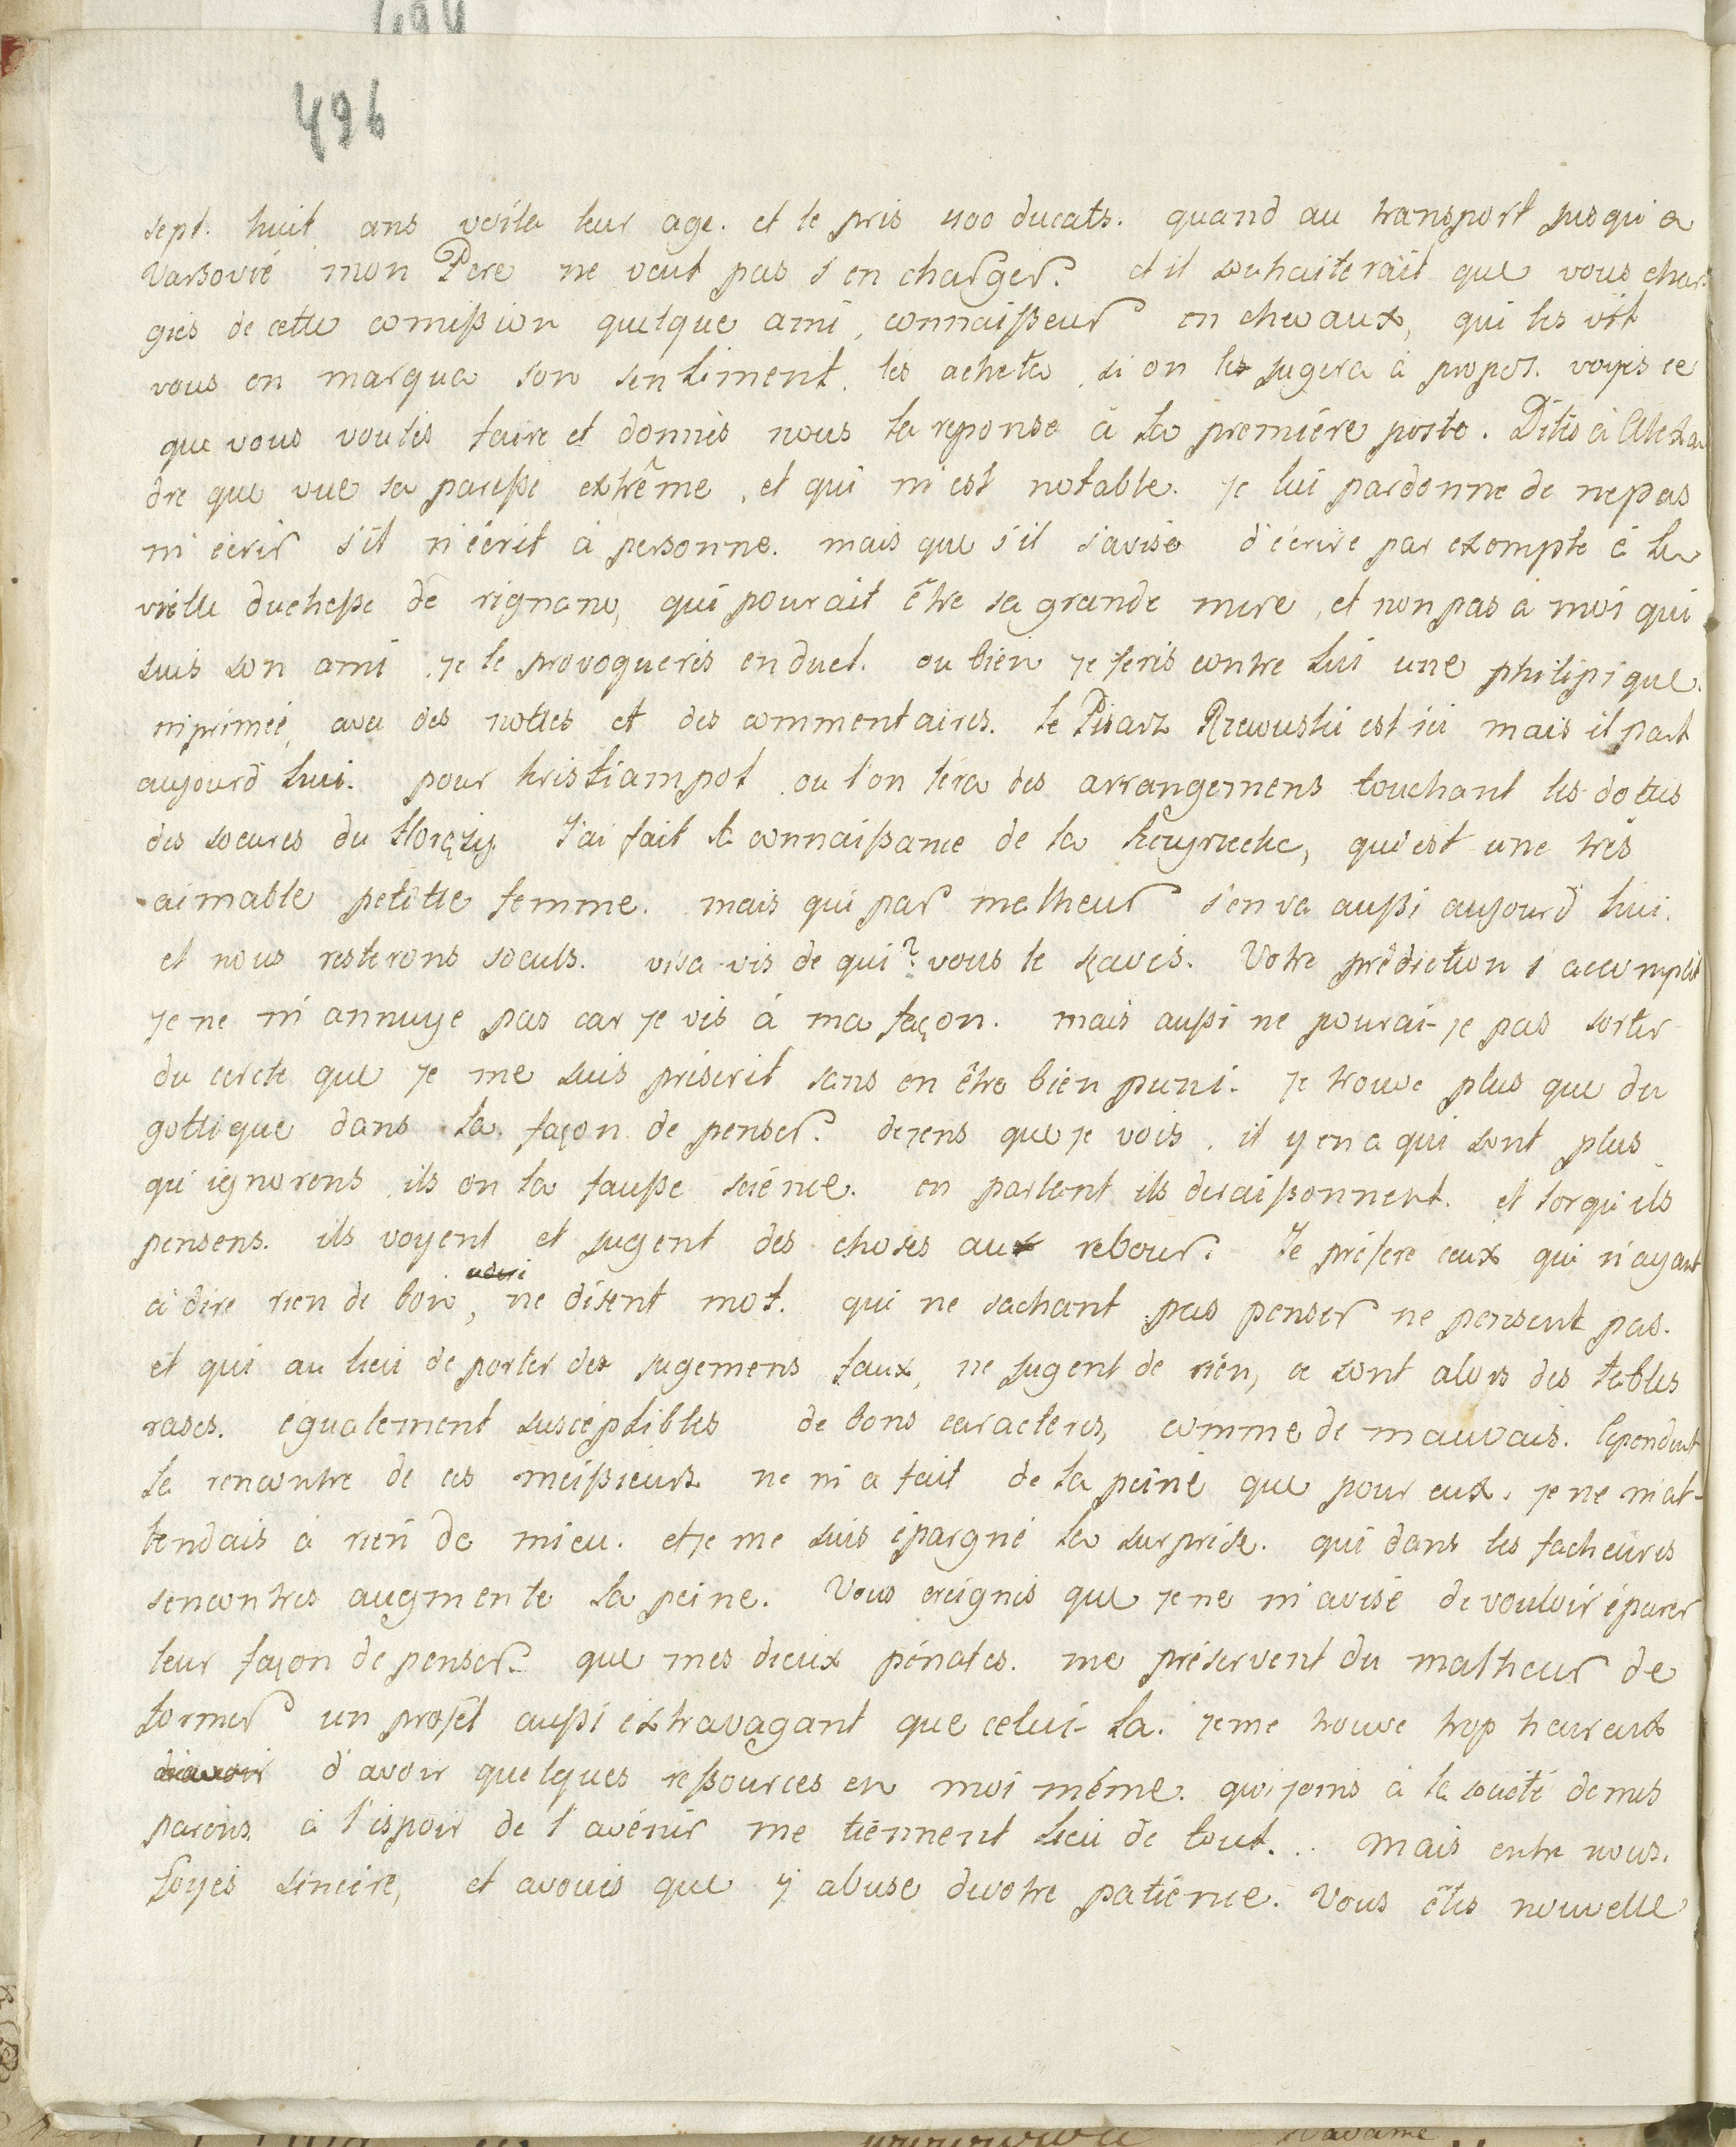 496
sept. huit ans voila leur age. et le pris 400 ducats. quand au transport jusqu'a
Varsovie mon Pere ne veut pas s'en charger. et il souhaiterait que vous char
giés de cette comission quelque ami, connaisseur en chevaux, qui les vit
vous en marqua son sentiment. les acheta si on les jugera à propos. voyés ce
que vous voulés faire et donnés nous la reponse à la première poste. Dites à Alexan
dre que vue sa paresse extrême, et qui m'est notable. je lui pardonne de ne pas
m'écrir s'il n'écrit à personne. mais que s'il s'avise d'écrire par exemple à la
vielle duchesse de rignano, qui pourait être sa grande mere, et non pas à moi qui
suis son ami. je le provoqueris en duel. ou bien je feris contre lui une philipique.
mprimée, avec des nottes et des commentaires. le Pisarz Rzewuski est ici mais il part
aujourd hui. pour kristiampol ou l'on féra des arrangemens touchant les dottes
des soeures du J'ai fait la connaissance de la qu'est une très
aimable petitte femme. mais qui par malheur s'en va aussi aujourd'hui.
et nous resterons soeuls. vis a vis de qui? vous le sçavés. Votre prédiction s'accomplit
je ne m'annuye pas car je vis à ma façon. mais aussi ne pourai-je pas sortir
du cercle que je me suis priscrit sans en être bien puni. je trouve plus que du
gottique dans la façon de penser. de jens que je vois. il y en a qui sont plus
qu'ignorens ils on la fausse science. en parlant ils déraissonnent. et lorqu'ils
pensens. ils voyent et jugent des choses aux rebour. Je préfere ceux qui n'ayant
à dire rien de bon, ne disent mot. qui ne sachant pas penser ne pensent pas.
et qui au lieu de porter des jugemens faux, ne jugent de rien, ce sont alors des tables
rases. égualement susceptibles de bons caracteres, comme de mauvais. Cependant
la rencontre de ces meissieurs ne m'a fait de la peine que pour eux. je ne m'at-
tendais à rien de mieu. et je me suis épargné la surprise. qui dans les facheures
rencontres augmente la peine. Vous creignés que je ne m'avise de vouloir éparer
leur façon de penser. que mes dieux pénates. me préservent du malheur de
former un projet aussi extravagant que celui-la. je me trouve trop heureux
d'avoir quelques ressources en moi même. qui joins à la société de mes
parens à l'espoir de l'avénir me tiennent lieu de tout... Mais entre nous.
Soyés sincère, et avoués que j'abuse de votre patience. Vous êtes nouvelle